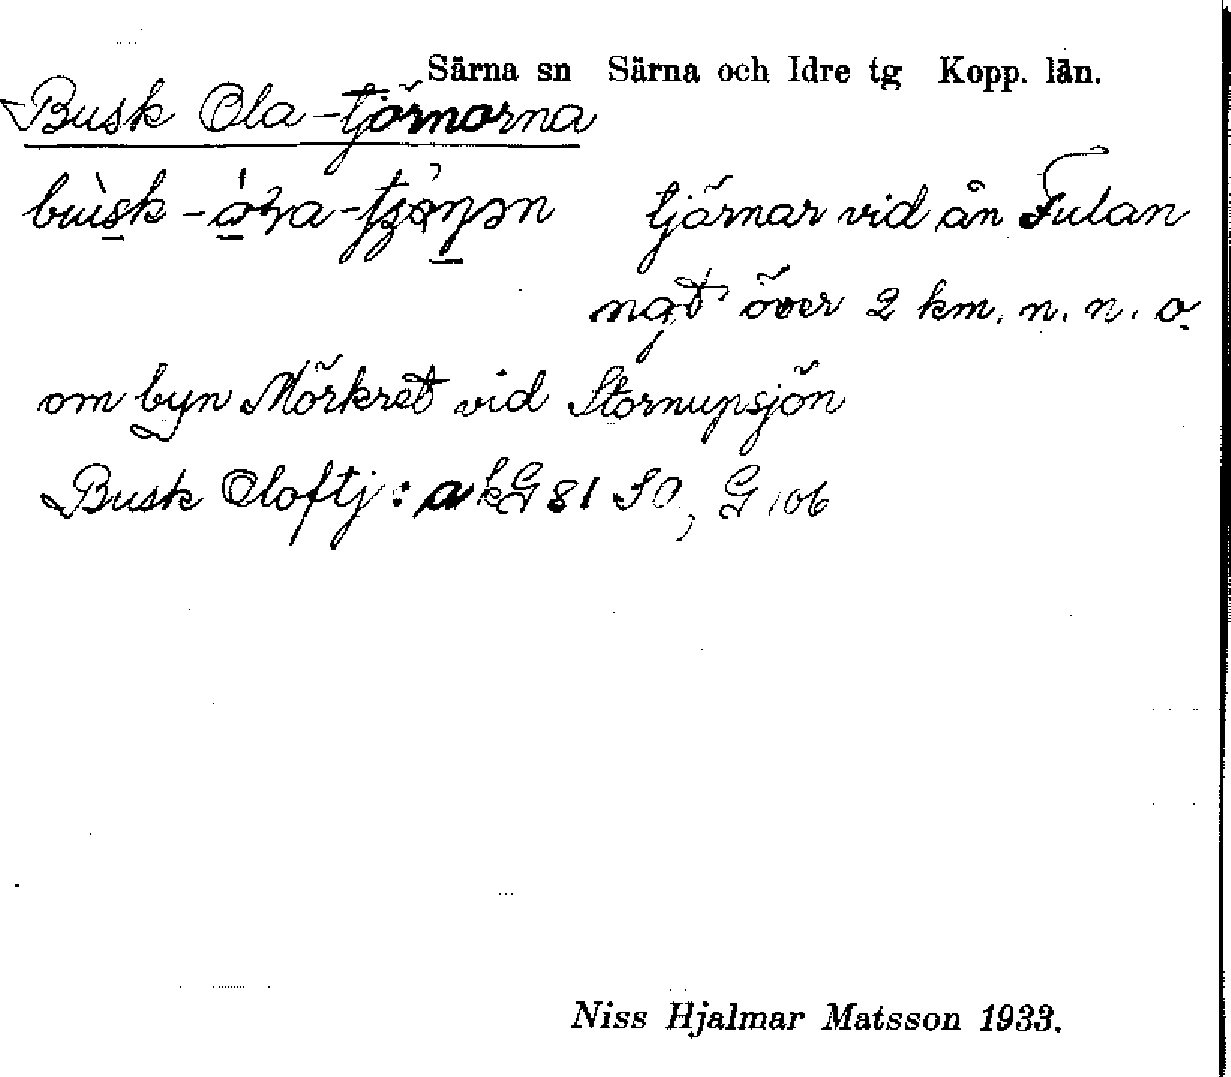 Särna sn Särna och Idre tg Kopp. län.
Busk Ola-tjärnarna
tjärnar vid ån Fulan
ngt över 2 km. n. n. o.
om byn Mörkret vid Stornupsjön
Busk Oloftj: ak G 81 SO, G 106
Niss Hjalmar Matsson 1933.